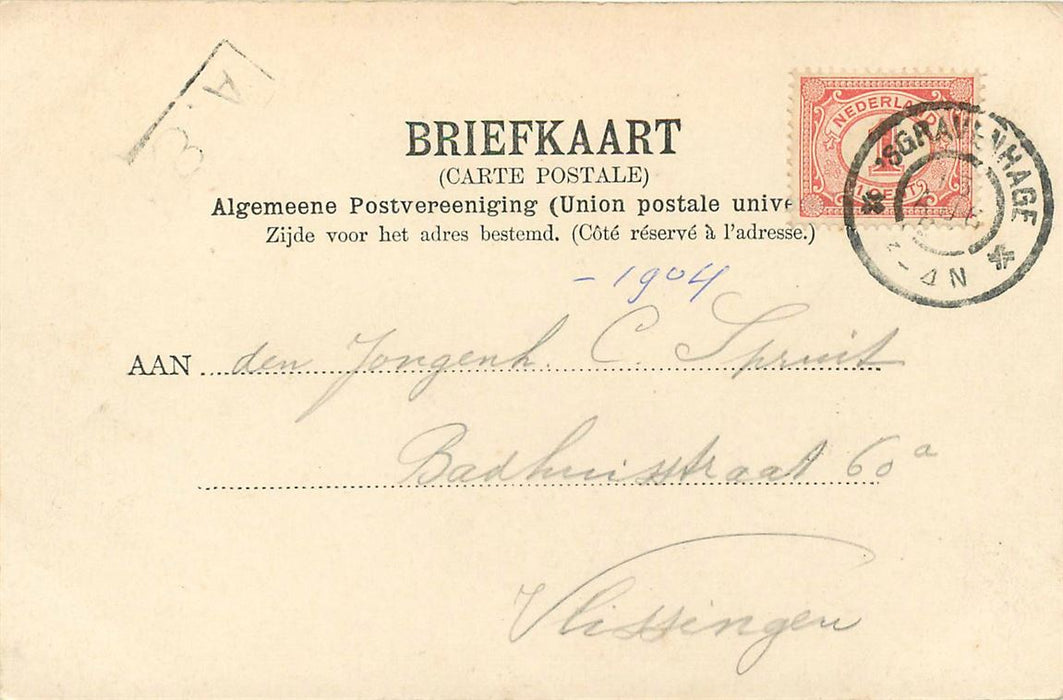 A.
3
BRIEFKAART
(CARTE POSTALE)
Algemeene Postvereeniging (Union postale unive
Zijde voor het adres bestemd. (Côté réservé à l'adresse.)
NEDERLAND
1
1 CENT
'SGRAVENHAGE
N
- 1904
AAN den Jongenh. C. Spruit
Badhuisstraat 60a
Vlissingen